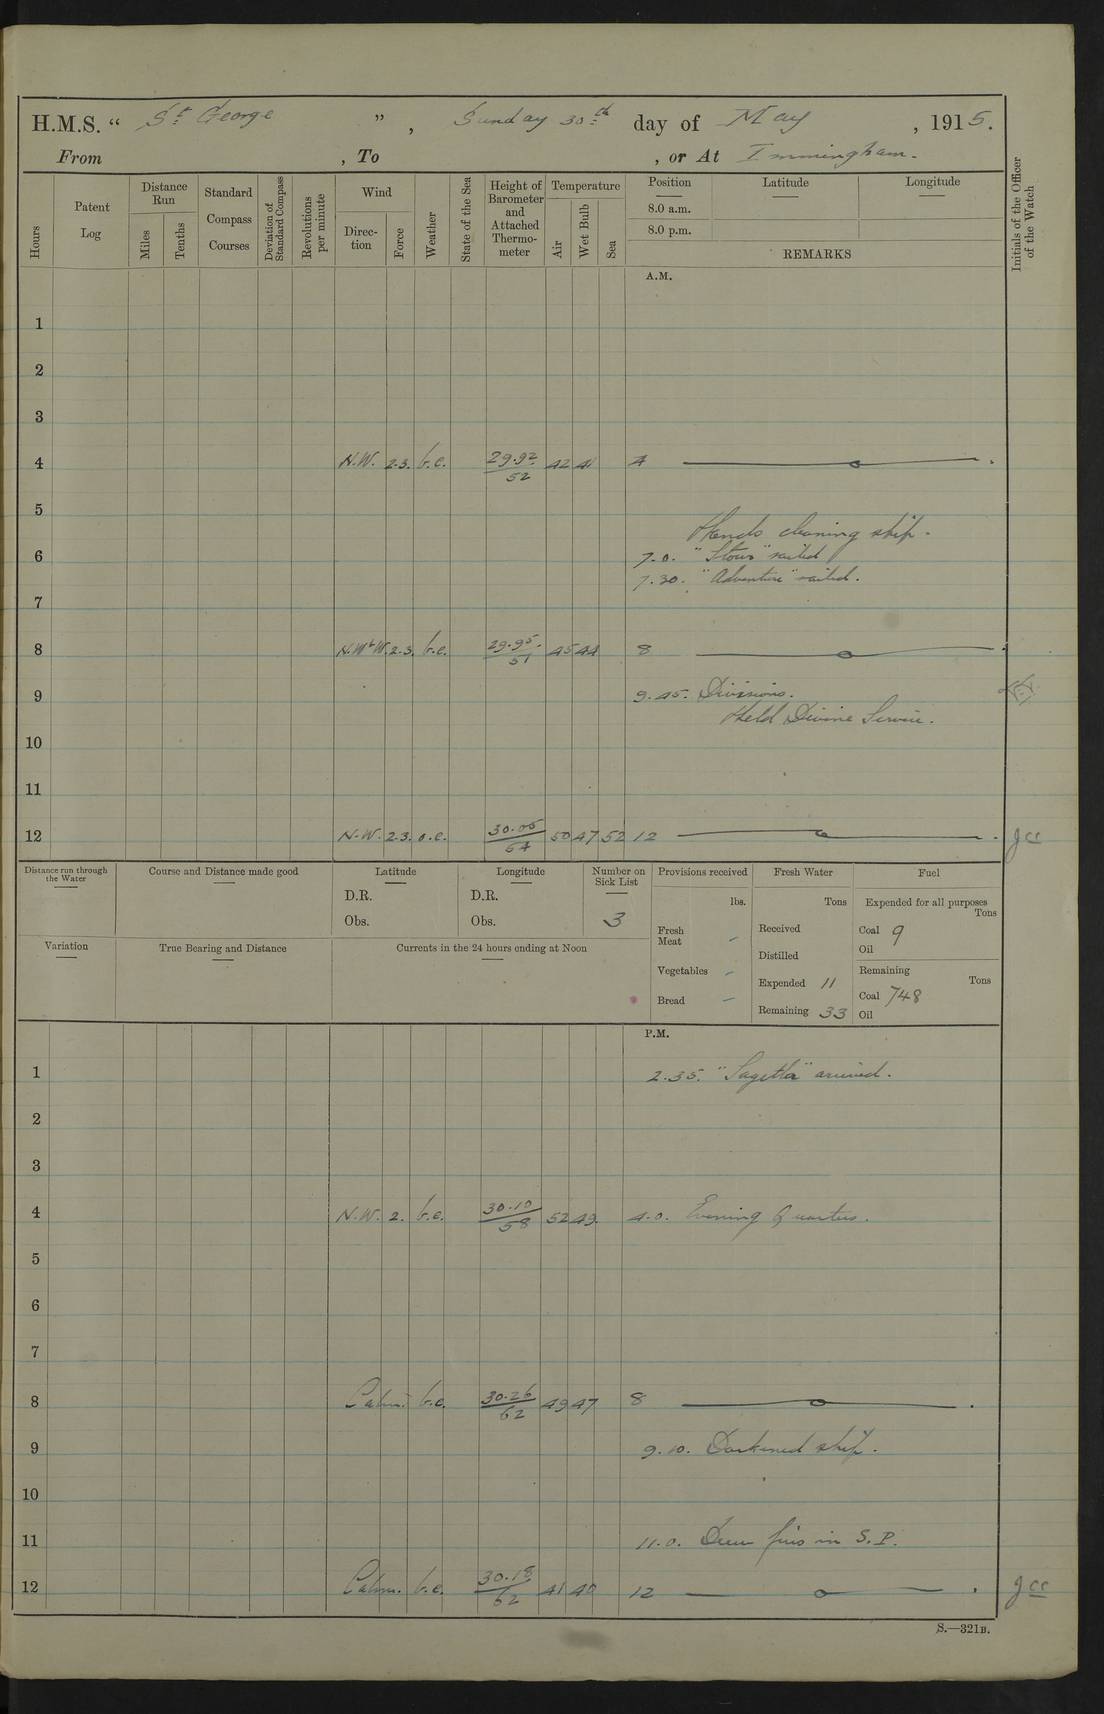 H.M.S. “ St George ” , Sunday 30th day of May , 1915.
From , To , or At Immingham.
Hours
Patent Log
Distance Run
Miles
Tenths
Standard Compass Courses
Deviation of Standard Compass
Revolutions per minute
Wind
Direction
Force
Weather
State of the Sea
Height of Barometer and Attached Thermometer
Temperature
Air
Wet Bulb
Sea
Position
Latitude
Longitude
8.0 a.m.
8.0 p.m.
REMARKS
Initials of the Officer of the Watch
A.M.
1
2
3
4 N.W. 2.3. b.c. 29.92/52 42 41 4
5
Hands cleaning ship.
6 7.0. "Stour" sailed
7.30. "Adventure" sailed.
7
8 N.WbW. 2.3. b.c. 29.95/51 45 44 8
9 9.45. Divisions.
Held Divine Service.
10
11
12 N.W. 2.3. o.c. 30.05/54 50 47 52 12 JCC
Distance run through the Water
Course and Distance made good
Latitude
D.R.
Obs.
Longitude
D.R.
Obs.
Number on Sick List
3
Provisions received
lbs.
Fresh Meat -
Vegetables -
Bread -
Fresh Water
Tons
Received
Distilled
Expended 11
Remaining 33
Fuel
Expended for all purposes
Tons
Coal 9
Oil
Remaining
Tons
Coal 748
Oil
Variation
True Bearing and Distance
Currents in the 24 hours ending at Noon
P.M.
1 2.35. "Sagitta" arrived.
2
3
4 N.W. 2. b.c. 30.10/58 52 49 4.0. Evening Quarters.
5
6
7
8 Calm. b.c. 30.26/62 49 47 8
9 9.10. Darkened ship.
10
11 11.0. Drew fires in S.P.
12 Calm. b.c. 30.18/62 41 40 12 JCC
S.—321B.